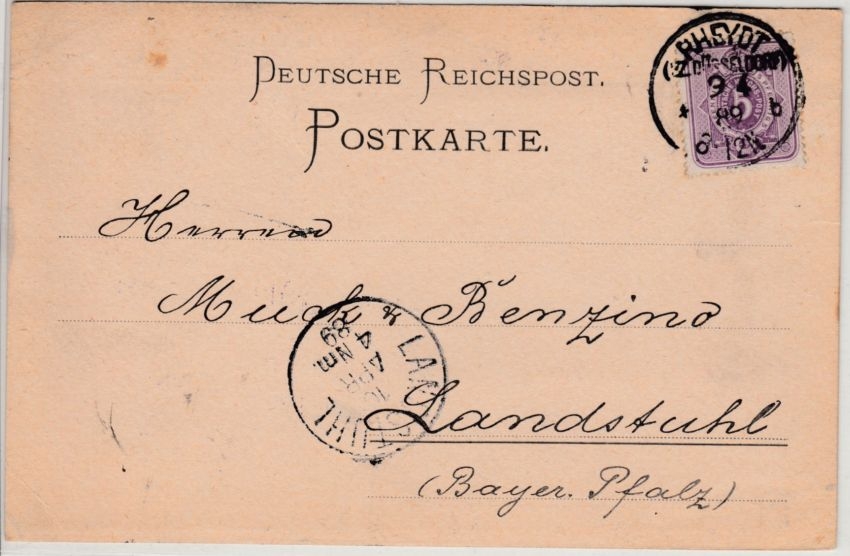 DEUTSCHE REICHSPOST.
POSTKARTE.
RHEYDT
(BZ. DÜSSELDORF)
9 4
* 89 b
6-12N
5
Herren
Muck & Benzino
LANDSTUHL
10
APR
4 Nm.
89
Landstuhl
(Bayer. Pfalz)